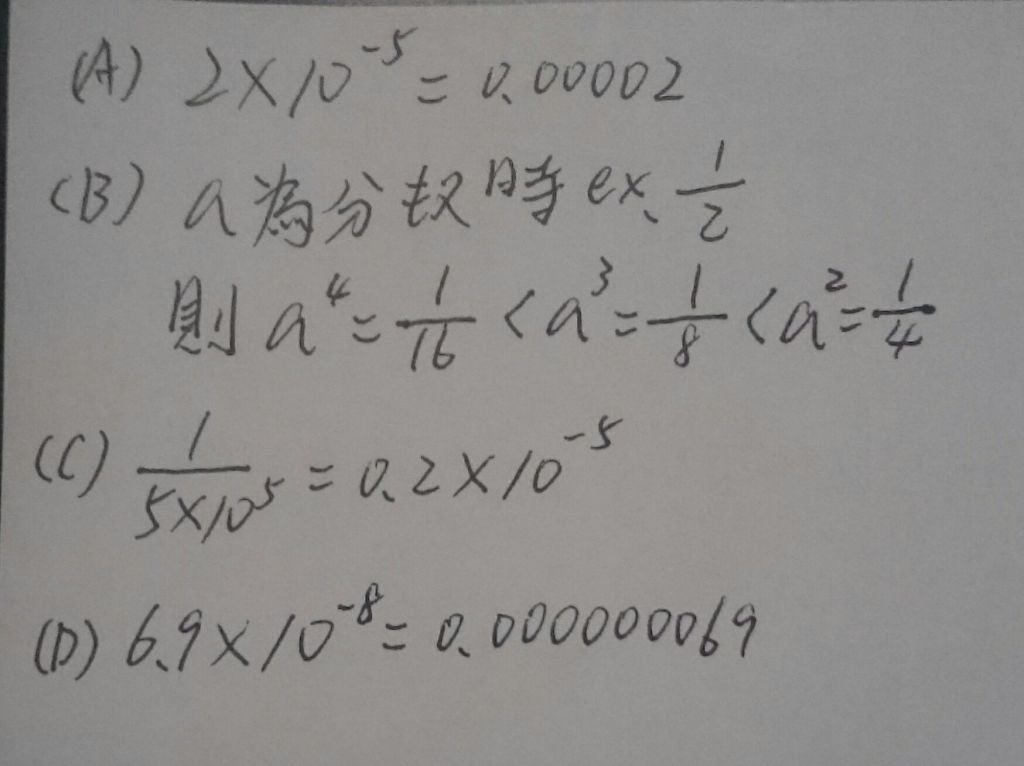 (A) 2×10⁻⁵ = 0.00002
(B) a為分数時 ex. 1/2
則 a⁴ = 1/16 < a³ = 1/8 < a² = 1/4
(C) 1/(5×10⁵) = 0.2×10⁻⁵
(D) 6.9×10⁻⁸ = 0.000000069